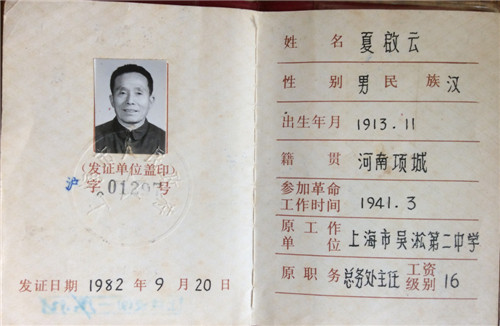 (发证单位盖印)
沪字 01297号
发证日期 1982 年 9 月 20 日
姓名 夏啟云
性别 男 民族 汉
出生年月 1913.11
籍贯 河南项城
参加革命
工作时间 1941.3
原工作
单位 上海市吴淞第二中学
原职务 总务处主任 工资
级别 16